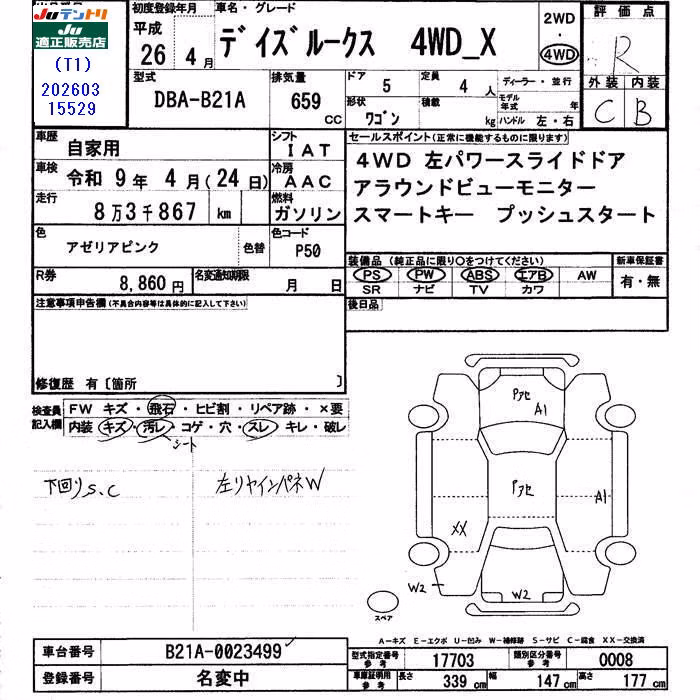 Juテントリ
Ju適正販売店
(T1)
202603
15529
初度登録年月
平成
26 4月
車名・グレード
デイズルークス 4WD_X
2WD
・
4WD
評価点
R
外装 内装
C B
型式
DBA-B21A
排気量
659 CC
ドア 5
定員 4 人
ディーラー・並行
形状 ワゴン
積載 kg
モデル年式 年
ハンドル 左・右
車歴 自家用
シフト IAT
車検 令和 9年 4月(24日)
冷房 AAC
走行 8万3千867 km
燃料 ガソリン
色 アゼリアピンク 色替
色コード P50
R券 8,860円
名変通知期限 月 日
セールスポイント(正常に機能するものに限ります)
4WD 左パワースライドドア
アラウンドビューモニター
スマートキー プッシュスタート
装備品(純正品に限り○をつけてください)
新車保証書
PS PW ABS エアB AW
SR ナビ TV カワ
有・無
後日品
注意事項申告欄(不具合内容等は具体的に記入して下さい)
修復歴 有〔箇所 〕
検査員記入欄
FW キズ・飛石・ヒビ割・リペア跡・×要
内装 キズ・汚レ・コゲ・穴・スレ・キレ・破レ
シート
下回りS.C
左リヤインパネW
Pアセ
A1
Pアセ
A1
XX
W2
W2
スペア
A-キズ E-エクボ U-凹み W-補修跡 S-サビ C-腐食 XX-交換済
車台番号 B21A-0023499
登録番号 名変中
型式指定番号 参考 17703
類別区分番号 参考 0008
車庫証明用 参考 長さ 339 cm 幅 147 cm 高さ 177 cm